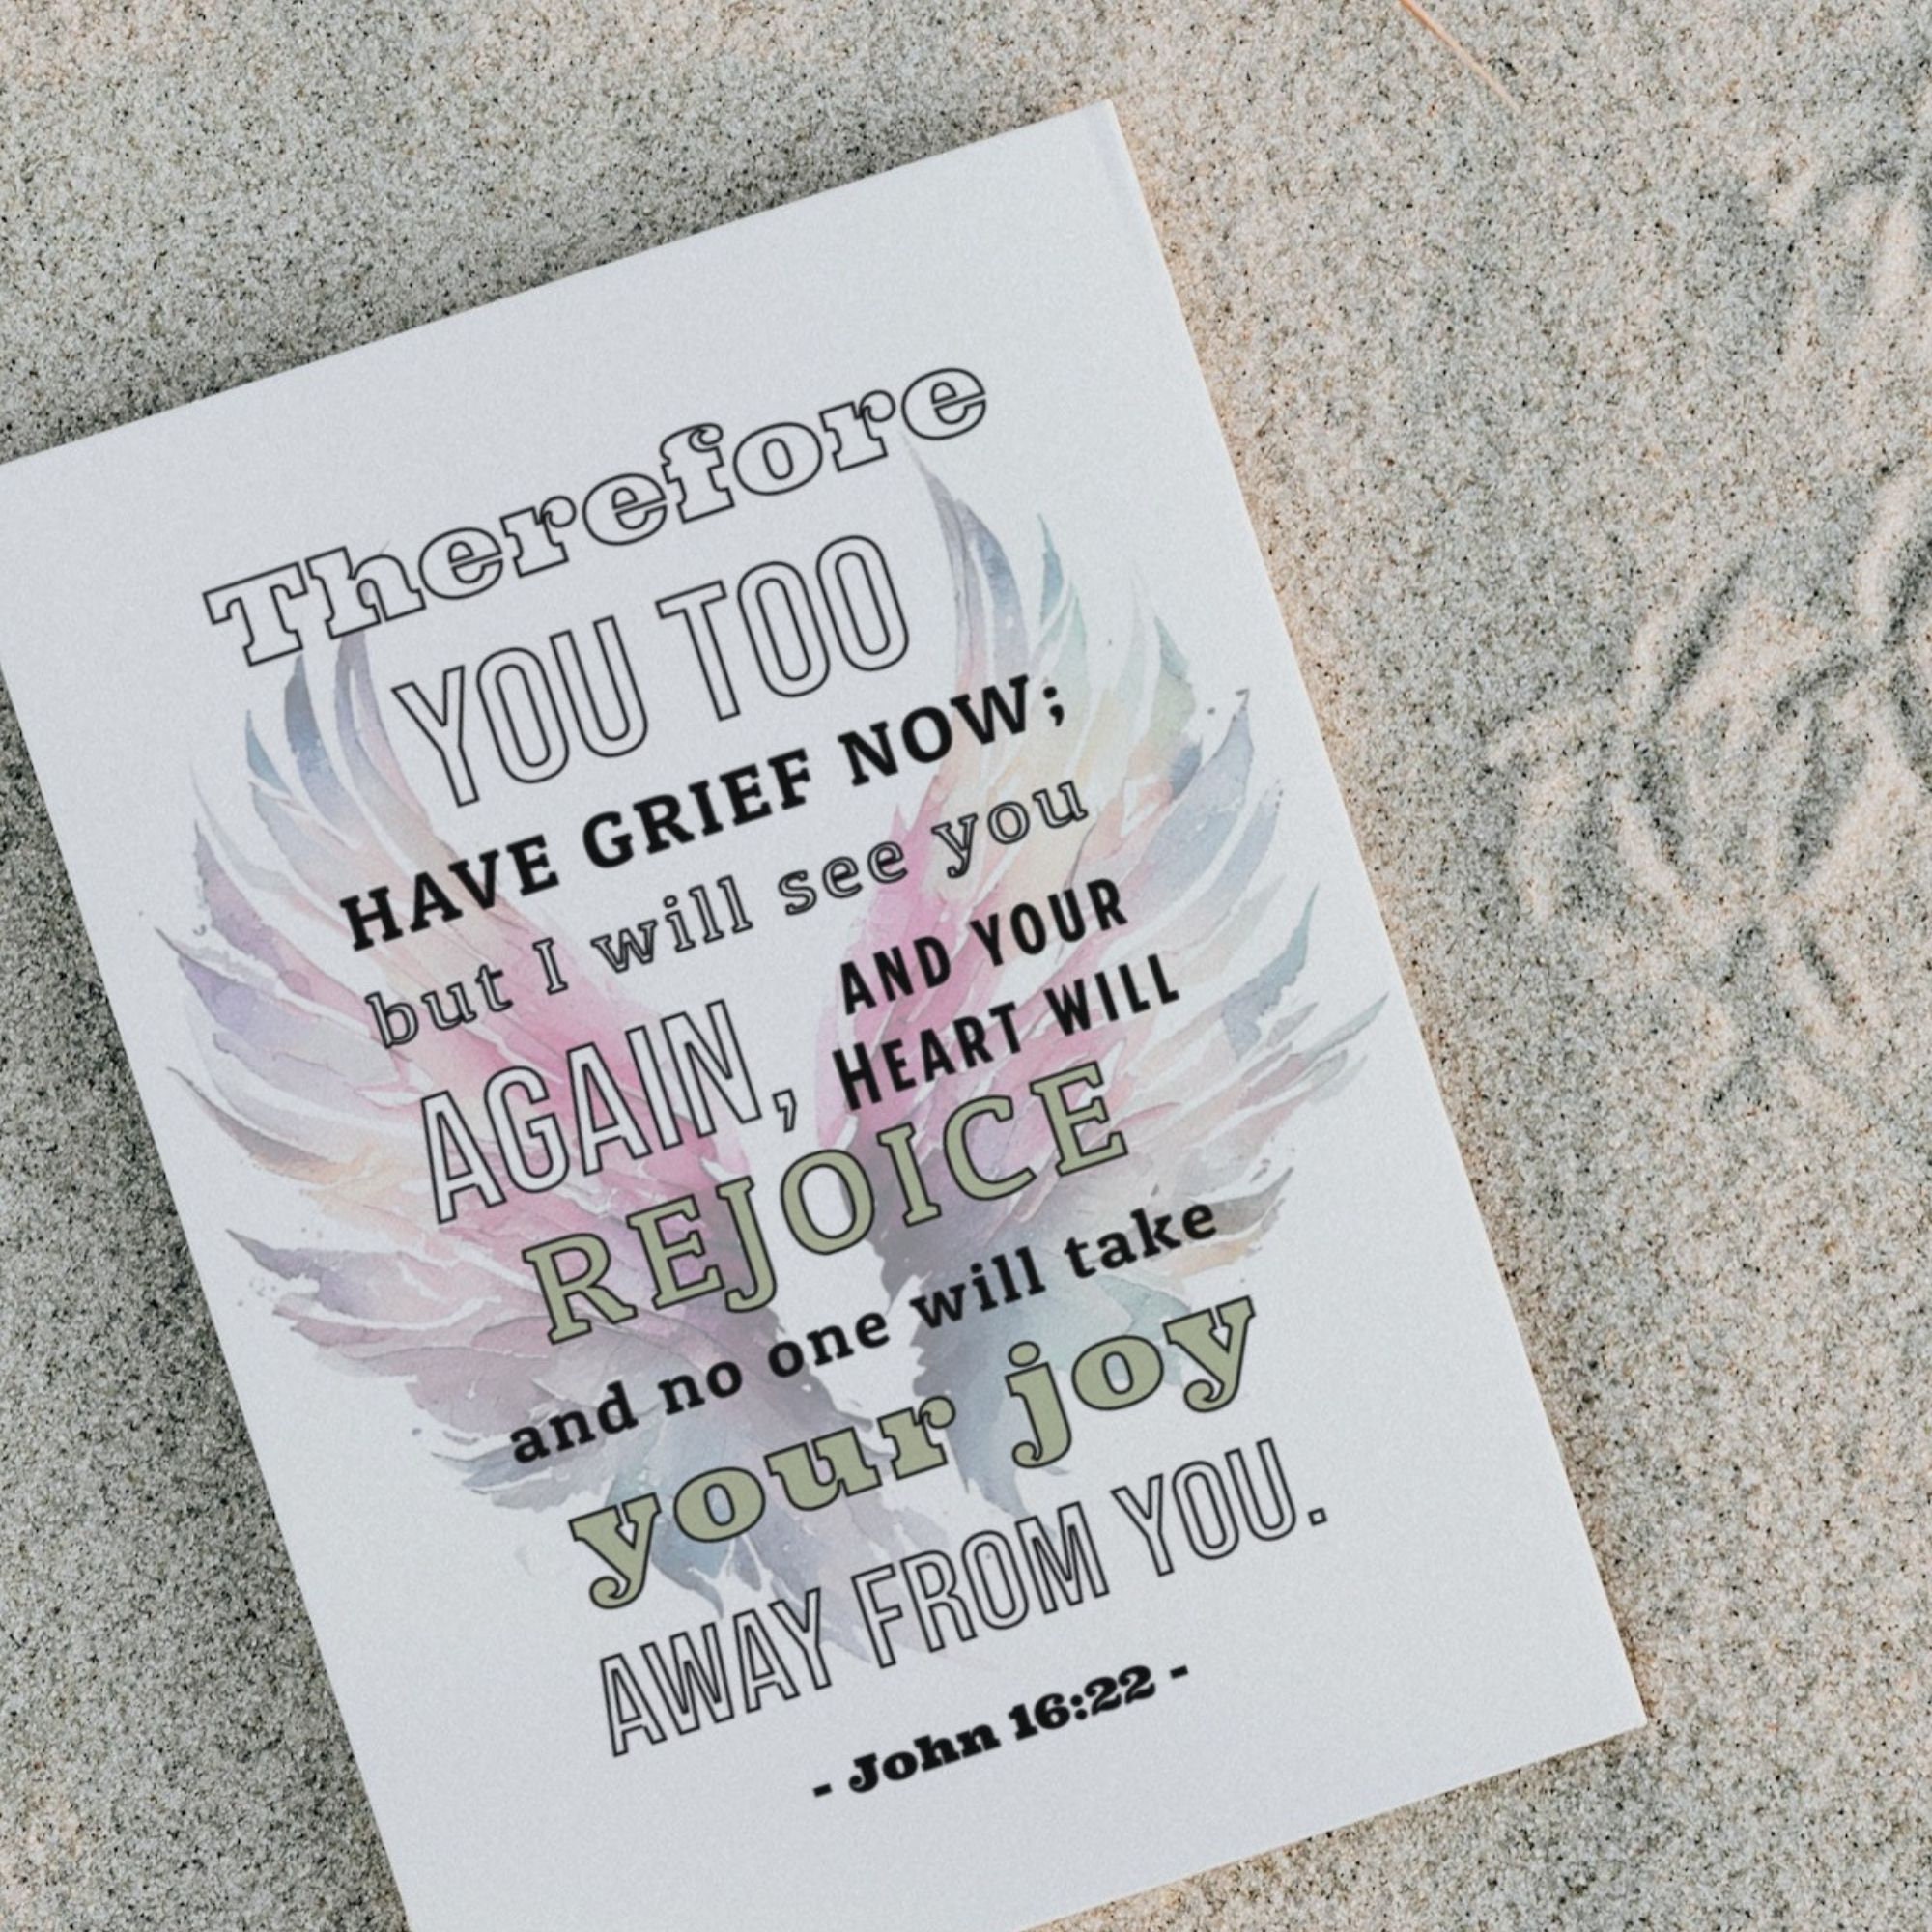 Therefore
YOU TOO
HAVE GRIEF NOW;
but I will see you
AGAIN,
AND YOUR
HEART WILL
REJOICE
and no one will take
your joy
AWAY FROM YOU.
- John 16:22 -